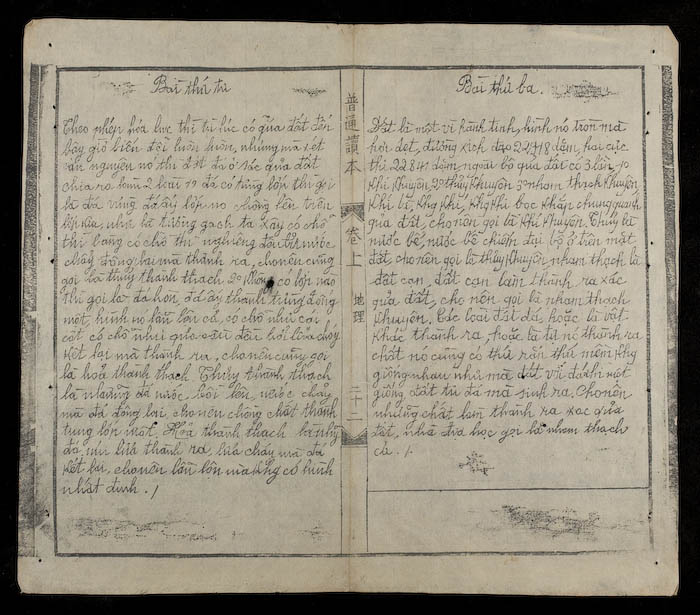 Bài thứ ba.
Đất là một vì hành tinh, hình nó tròn mà
hơi dẹt, đường xích đạo 22918 dặm, hai cực
thì 22841 dặm ngoài bộ quả đất có 3 lần, 1º
Khí khuyên, 2º thủy khuyên 3º nham thạch khuyên
Khí là khg khí, khg khí bọc khắp chung quanh
quả đất, cho nên gọi là khí khuyên. Thủy là
nước bể, nước bể chiếm đại bộ ở trên mặt
đất cho nên gọi là thủy khuyên nham thạch là
đất cạn đất cạn làm thành ra xác
quả đất, cho nên gọi là nham thạch
khuyên. Các loài đất đá, hoặc là vật
khác thành ra, hoặc là tự nó thành ra
chất nó cũng có thứ rắn thứ mềm khg
giống nhau nhưng mà đất với đá kh một
giống đất từ đá mà sinh ra. Cho nên
những chất làm thành ra xác quả
đất, nhà địa học gọi là nham thạch
cả. /.
普通讀本
卷上
地理
二十二
Bài thứ tư
Theo phép hóa học thì từ lúc có quả đất đến
bây giờ biến đổi luôn luôn, nhưng mà xét
văn nguyên nó thì đất đá ở xác quả đất
chia ra làm 2 loài 1º đá có từng lớp thì gọi
là đá vùng đá ấy lớp nọ chồng lên trên
lớp kia, như là tường gạch ta xây có chỗ
thì bằng có chỗ thì nghiêng đều bởi nước
chảy đóng lại mà thành ra, cho nên cũng
gọi là thủy thành thạch. 2º không có lớp nào
thì gọi là đá hòn, đá ấy thành từng đống
một, hình nó lẫn lộn cả, có chỗ như cái
cột có chỗ như quả cầu đều bởi lửa chảy
kết lại mà thành ra, cho nên cũng gọi
là hoả thành thạch Thủy thành thạch
là những đá nước bồi lên, nước chảy
mà đá đóng lại, cho nên chồng chất thành
từng lớp một. Hoả thành thạch là những
đá núi lửa thành ra, lửa chảy mà đá
kết lại, cho nên lẫn lộn mà khg có hình
nhất định. /